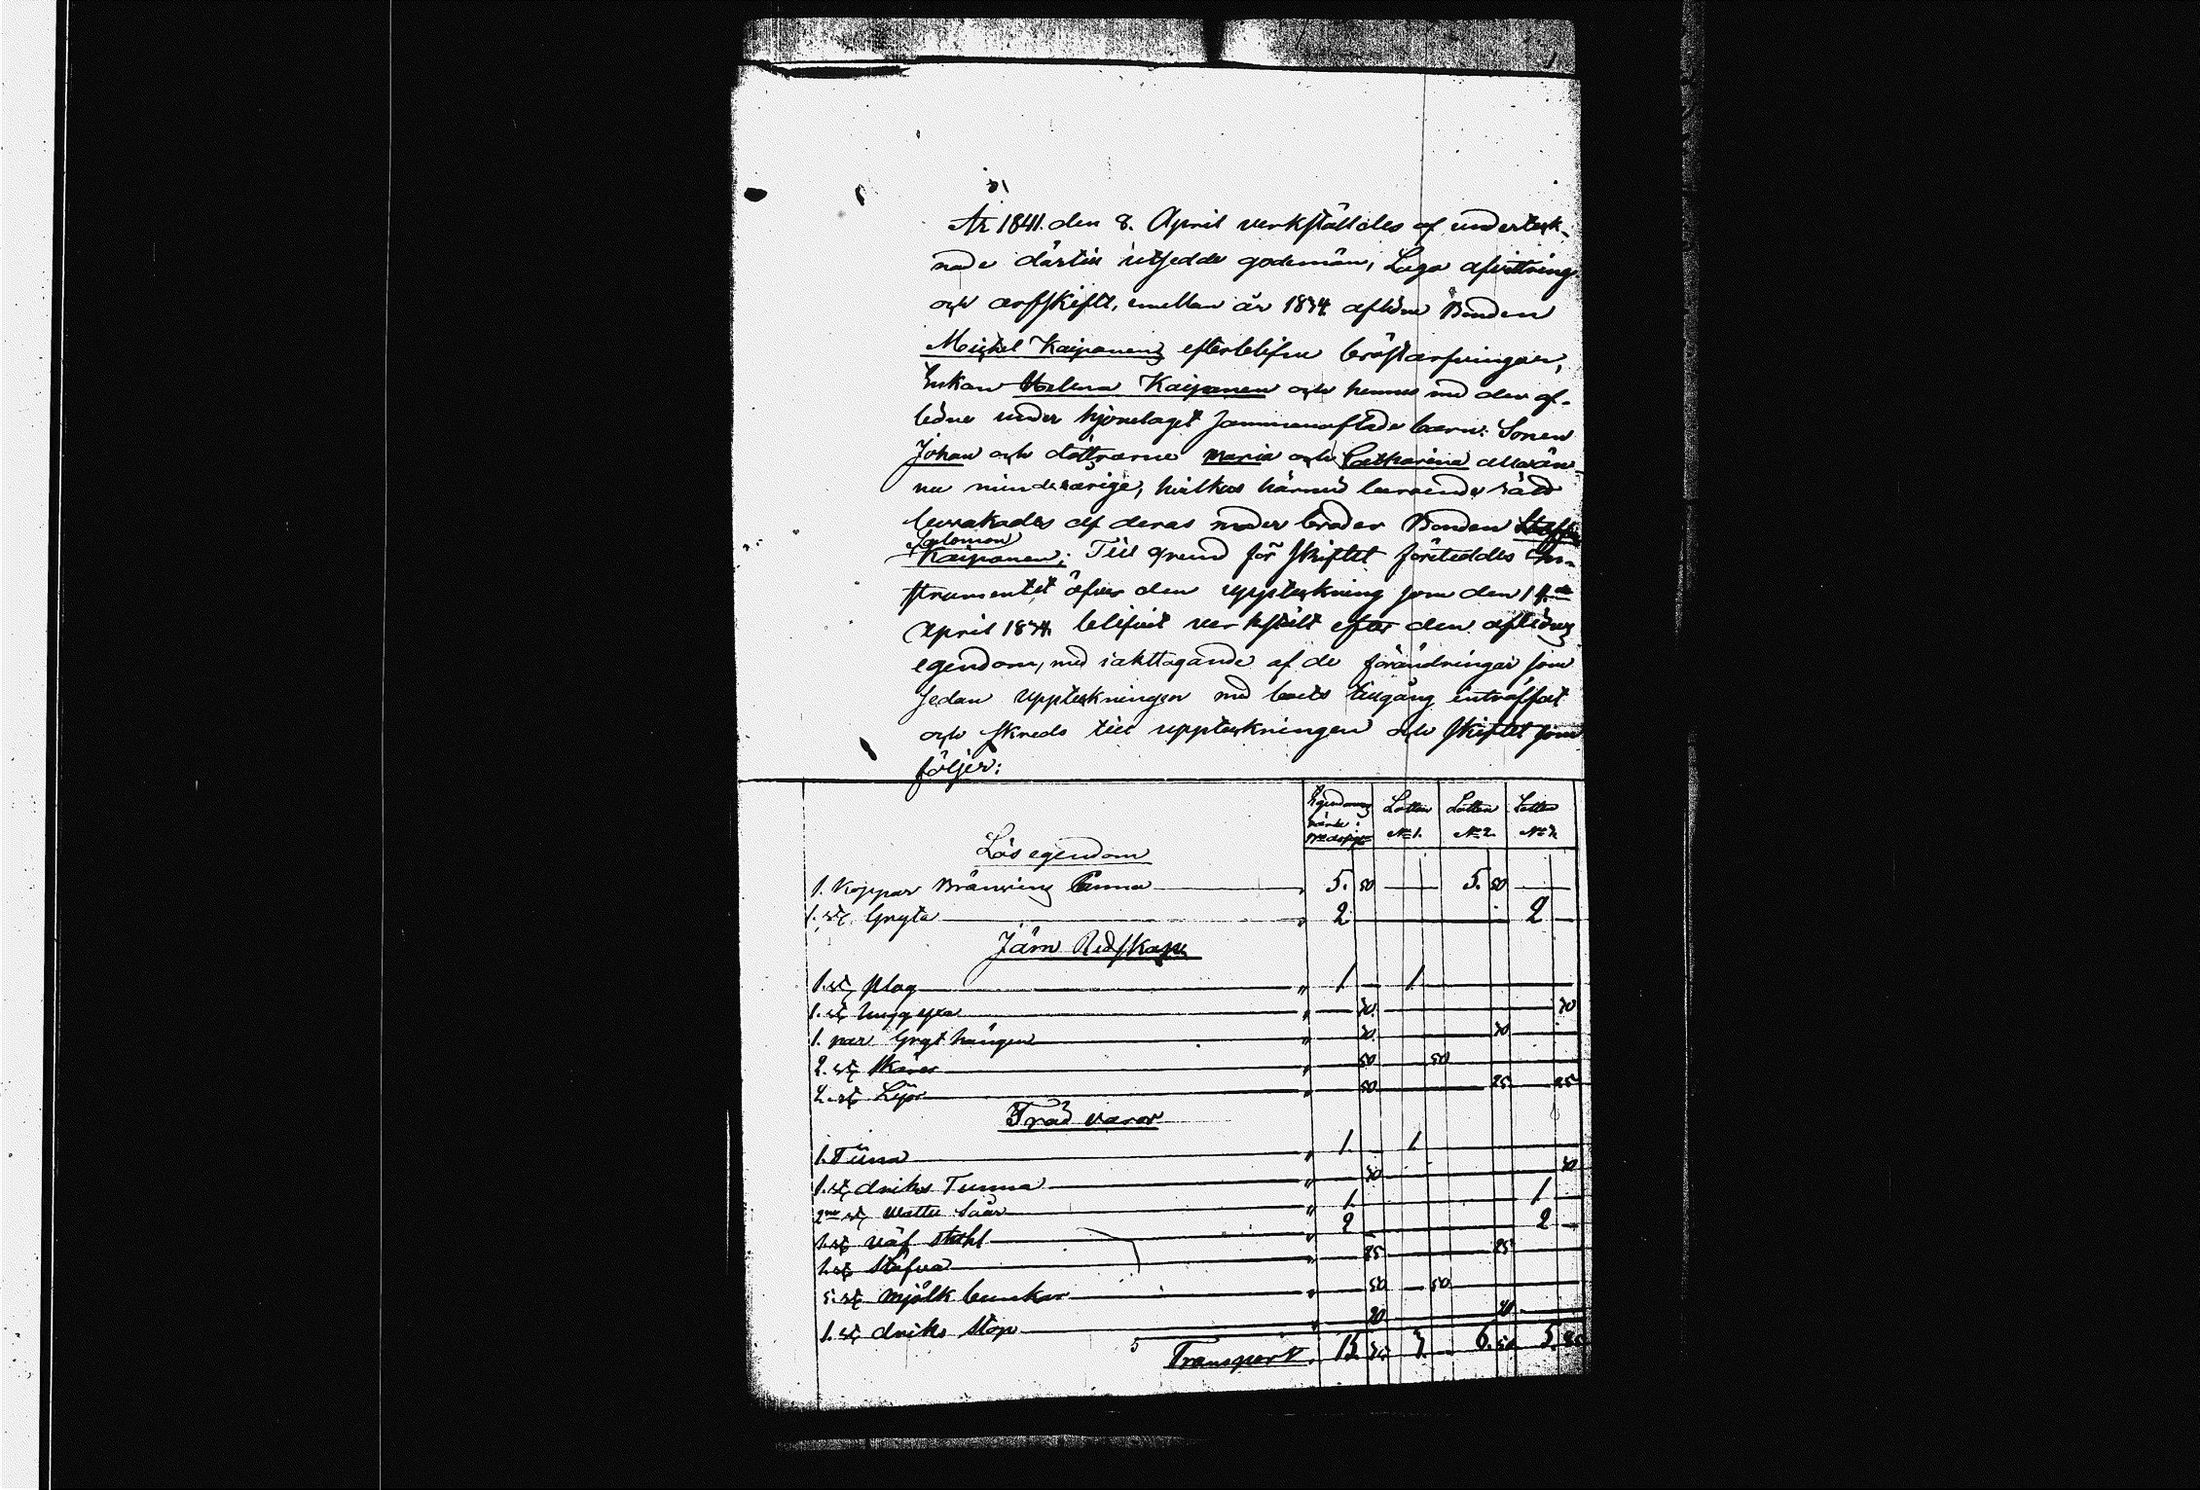 År 1841. den 8. April verkställdes af underteck-
nade därtill utsedde godemän, Laga afvittring
och arfskifte, emellan år 1834 aflidne Bonden
Michel Kaipanens efterblifne bröstarfvingar,
Enkan Helena Kaipanen och hennes med den af-
ledne under hjonelaget sammanaflade barn: Sonen
Johan och döttrarne Maria och Catharina allaän-
nu minderårige, hvilkas härvid beroende rätt
bevakades af deras moder broder Bonden Staffan
Salomon
Kaipanen; Till grund för skiftet företeddes In-
strumentet öfver den uppteckning som den
April 1834 blifvit verkstält efter den aflidnes
egendom, med iakttagande af de förändringar som
sedan uppteckningen med boets tillgång inträffat
och skreds till uppteckningen och skiftet som
följer:
Egendomens värde i Lotten Lotten Lotten
No 1. No 2. No 3.
Lös egendom
1. Koppar Bränvins Panna 5. 50 5. 50
1. st Gryta 2 2
Järn Redskap
1. st plog 1 1.
1. st hugg yxa 30. 30
1. par Gryt hängen 30. 30
2. st Skäror 50 50
2. st Lijor 50 25 25
Träd varor
1. Tiina 1. 1.
1. st driks Tunna 30 30
2ne st watte Såar 1. 1
1. st väf stohl 2 2
1. st Stäfva 25 25
5. st mjölk bunkar 50 50
1. st driks stop 20 20
Transport. 15. 3. 6. 5.